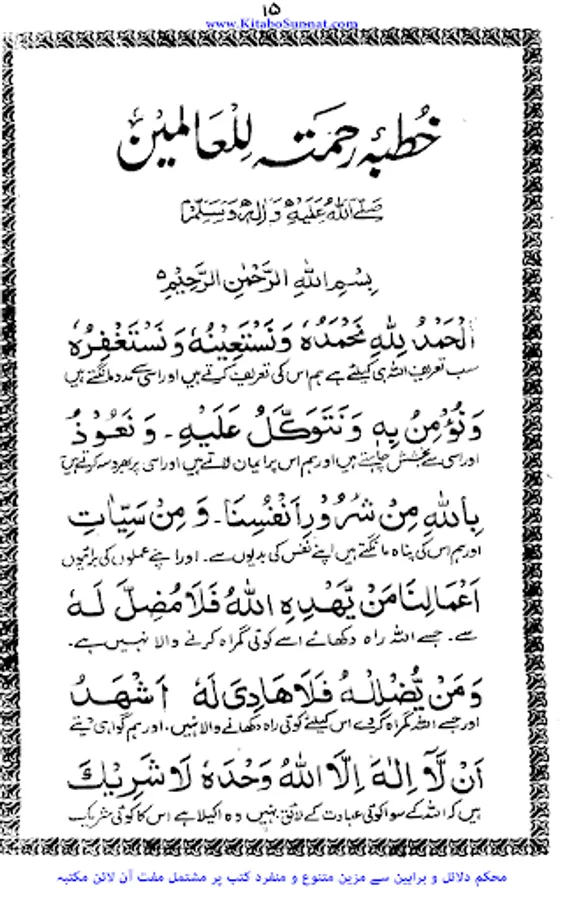 ۱۵
www.KitaboSunnat.com
خُطبۂ رحمتہ لِلْعَالمِیْن
صَلَّے اللهُ عَلَيْهِ وَاٰلِهٖ وَسَلَّمَ
بِسْمِ اللهِ الرَّحْمٰنِ الرَّحِيْمِ ۵
اَلْحَمْدُ لِلّٰهِ نَحْمَدُهٗ وَنَسْتَعِيْنُهٗ وَنَسْتَغْفِرُهٗ
سب تعریف اللہ ہی کیلئے ہے ہم اس کی تعریف کرتے ہیں اور اسی سے مدد مانگتے ہیں
وَنُؤْمِنُ بِهٖ وَنَتَوَكَّلُ عَلَيْهِ۔ وَنَعُوْذُ
اور اسی سے بخشش چاہتے ہیں اور ہم اس پر ایمان لاتے ہیں اور اسی پر بھروسہ کرتے ہیں
بِاللهِ مِنْ شُرُوْرِ اَنْفُسِنَا۔ وَمِنْ سَيِّاٰتِ
اور ہم اس کی پناہ مانگتے ہیں اپنے نفس کی بدیوں سے۔ اور اپنے عملوں کی برائیوں
اَعْمَالِنَا مَنْ يَّهْدِهِ اللهُ فَلَا مُضِلَّ لَهٗ
سے۔ جسے اللہ راہ دکھائے اسے کوئی گمراہ کرنے والا نہیں ہے۔
وَمَنْ يُّضْلِلْهُ فَلَا هَادِىَ لَهٗ اَشْهَدُ
اور جسے اللہ گمراہ کردے اس کیلئے کوئی راہ دکھانے والا نہیں، اور ہم گواہی دیتے
اَنْ لَّآ اِلٰهَ اِلَّا اللهُ وَحْدَهٗ لَا شَرِيْكَ
ہیں کہ اللہ کے سوا کوئی عبادت کے لائق نہیں وہ اکیلا ہے اس کا کوئی شریک
محکم دلائل و براہین سے مزین متنوع و منفرد کتب پر مشتمل مفت آن لائن مکتبہ